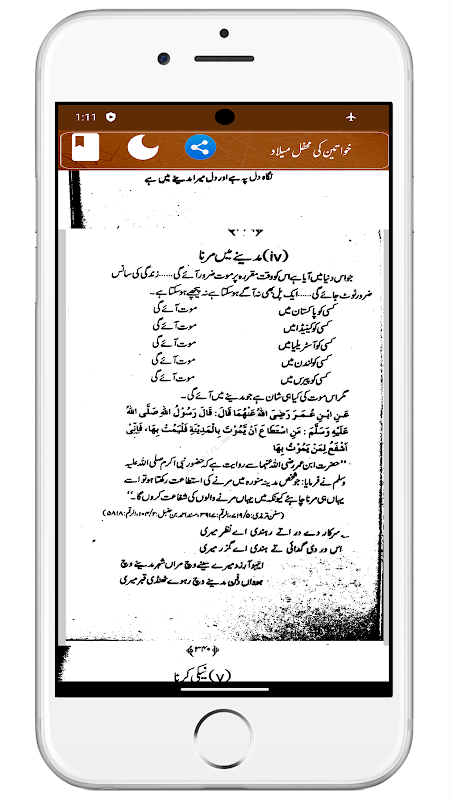 1:11
خواتین کی محفل میلاد
نگاہ دل پہ ہے اور دل میرا مدینے میں ہے
(iv) مدینے میں مرنا
جو اس دنیا میں آیا ہے اس کو وقت مقررہ پر موت ضرور آئے گی......زندگی کی سانس
ضرور ٹوٹ جائے گی......ایک پل بھی نہ آگے ہو سکتا ہے نہ پیچھے ہو سکتا ہے۔
کسی کو پاکستان میں موت آئے گی
کسی کو کینیڈا میں موت آئے گی
کسی کو آسٹریلیا میں موت آئے گی
کسی کو لندن میں موت آئے گی
کسی کو پیرس میں موت آئے گی
مگر اس موت کی کیا ہی شان ہے جو مدینے میں آئے گی۔
عَنِ ابْنِ عُمَرَ رَضِیَ اللهُ عَنْهُمَا قَالَ: قَالَ رَسُوْلُ اللهِ صَلَّی اللهُ
عَلَیْهِ وَسَلَّمَ: مَنِ اسْتَطَاعَ اَنْ یَّمُوْتَ بِالْمَدِیْنَةِ فَلْیَمُتْ بِهَا، فَاِنِّیْ
اَشْفَعُ لِمَنْ یَمُوْتُ بِهَا
"حضرت ابن عمر رضی اللہ عنہما سے روایت ہے کہ حضور نبی اکرم صلی اللہ علیہ
وسلم نے فرمایا: جو شخص مدینہ منورہ میں مرنے کی استطاعت رکھتا ہو تو اسے
یہاں ہی مرنا چاہئے کیونکہ میں یہاں مرنے والوں کی شفاعت کروں گا۔"
(سنن ترمذی: ۵/۷۱۹، الرقم: ۳۹۱۷، مسند احمد بن حنبل: ۲/۱۰۴، الرقم: ۵۸۱۸)
سرکار دے در اتے رہندی اے نظر میری
اس در دی گدائی تے ہندی اے گزر میری
ایہو آرزو میرے سینے وچ مراں شہر مدینے وچ
ہوواں دفن مدینے وچ رہوے ٹھنڈی قبر میری
﴿۳۴۰﴾
(v) نیکی کرنا